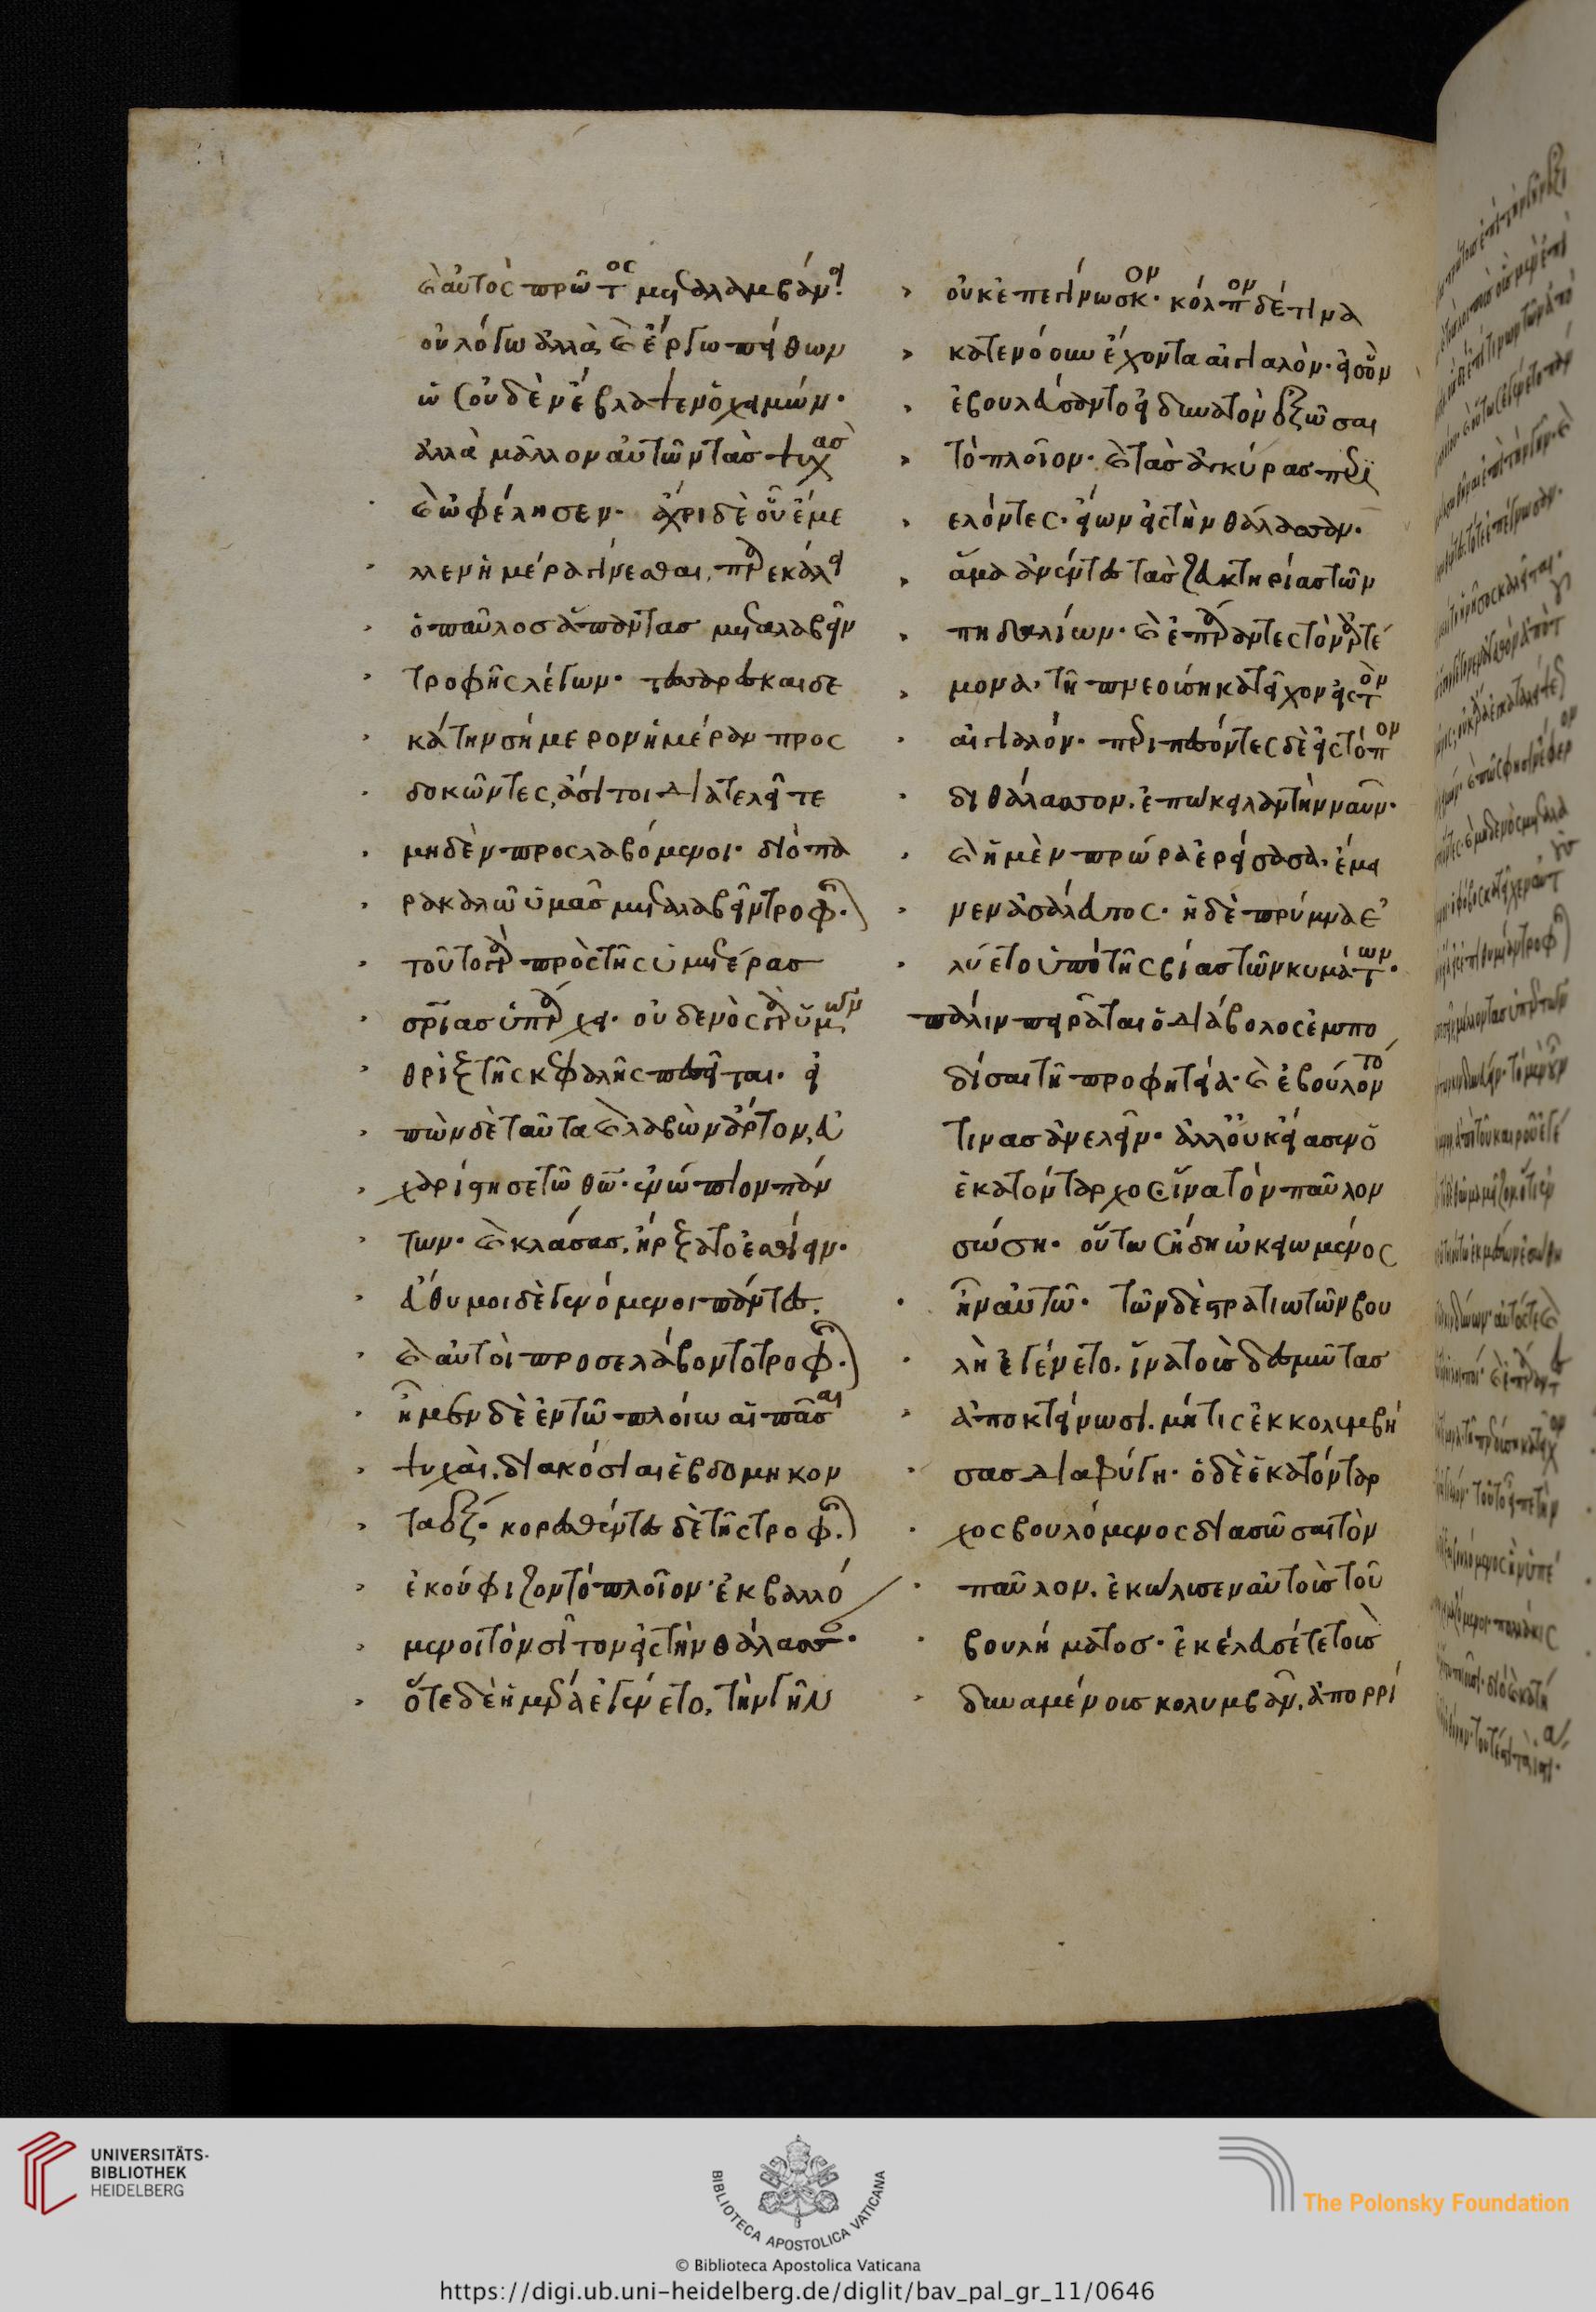 καὶ αὐτὸς πρῶτος μεταλαμβάνει
οὐ λόγω ἀλλὰ καὶ ἔργω πείθων
ὡς οὐδὲν ἔβλαψεν ὁ χειμών·
ἀλλὰ μᾶλλον αὐτῶν τὰς ψυχὰς
καὶ ὠφέλησεν· ἄχρι δὲ οὗ ἔμε
λλεν ἡμέρα γίνεσθαι, παρεκάλει
ὁ παῦλος ἅπαντας μεταλαβεῖν
τροφῆς λέγων· τεσσαρεσκαιδε
κάτην σήμερον ἡμέραν προσ
δοκῶντες, ἄσιτοι διατελεῖτε
μηδὲν προσλαβόμενοι· διὸ πα
ρακαλῶ ὑμᾶς μεταλαβεῖν τροφῆς·
τοῦτο γὰρ πρὸς τῆς ὑμετέρας
σρίας ὑπάρχει· οὐδενὸς γὰρ ὑμῶν
θρὶξ τῆς κεφαλῆς πεσεῖται· εἰ
πὼν δὲ ταῦτα καὶ λαβὼν ἄρτον, εὐ
χαρίστησε τῶ θῶ· ἐνώπιον πάν
των· καὶ κλάσας, ἤρξατο ἐσθίειν·
εὔθυμοι δὲ γενόμενοι πάντες.
καὶ αὐτοὶ προσελάβοντο τροφῆς·
ἦμεν δὲ ἐν τῶ πλοίω αἱ πᾶσαι
ψυχαὶ, διακόσιαι ἑβδομηκον
ταέξ· κορεσθέντες δὲ τῆς τροφῆς·
ἐκούφιζον τὸ πλοῖον· ἐκβαλλό
μενοι τὸν σῖτον εἰς τὴν θάλασσαν·
ὅτε δὲ ἡμέρα ἐγένετο, τὴν γῆν
οὐκ ἐπεγίνωσκον· κόλπον δέ τινα
κατενόουν ἔχοντα αἰγιαλὸν· εἰς ὃν
ἐβουλεύσαντο εἰ δυνατὸν ἐξῶσαι
τὸ πλοῖον· καὶ τὰς ἀγκύρας περι
ελόντες· εἴων εἰς τὴν θάλασσαν·
ἅμα ἀνέντες τὰς ζευκτηρίας τῶν
πηδαλίων· καὶ ἐπάραντες τὸν ἀρτέ
μονα, τῆ πνεούση κατεῖχον εἰς τὸν
αἰγιαλόν· περιπεσόντες δὲ εἰς τόπον
διθάλασσον, ἐπώκειλαν τὴν ναῦν·
καὶ ἡ μὲν πρώρα ἐρείσασα, ἔμει
νεν ἀσάλευτος· ἡ δὲ πρύμνα ἐ
λύετο ὑπὸ τῆς βίας τῶν κυμάτων·
πάλιν πειρᾶται ὁ διάβολος ἐμπο
δίσαι τῆ προφητεία· καὶ ἐβούλοντό
τινας ἀνελεῖν· ἀλλ' οὐκ εἴασεν ὁ
ἑκατόνταρχος ἵνα τὸν παῦλον
σώση· οὕτως ἤδη ὠκειωμένος
ἦν αὐτῶ· τῶν δὲ στρατιωτῶν βου
λὴ ἐγένετο, ἵνα τοὺς δεσμώτας
ἀποκτείνωσι, μήτις ἐκκολυμβή
σας διαφύγη· ὁ δὲ ἑκατόνταρ
χος βουλόμενος διασῶσαι τὸν
παῦλον, ἐκώλυσεν αὐτοὺς τοῦ
βουλήματος· ἐκέλευσέ τε τοὺς
δυναμένους κολυμβᾶν, ἀπορρί
UNIVERSITÄTS-
BIBLIOTHEK
HEIDELBERG
BIBLIOTECA APOSTOLICA VATICANA
The Polonsky Foundation
© Biblioteca Apostolica Vaticana
https://digi.ub.uni-heidelberg.de/diglit/bav_pal_gr_11/0646